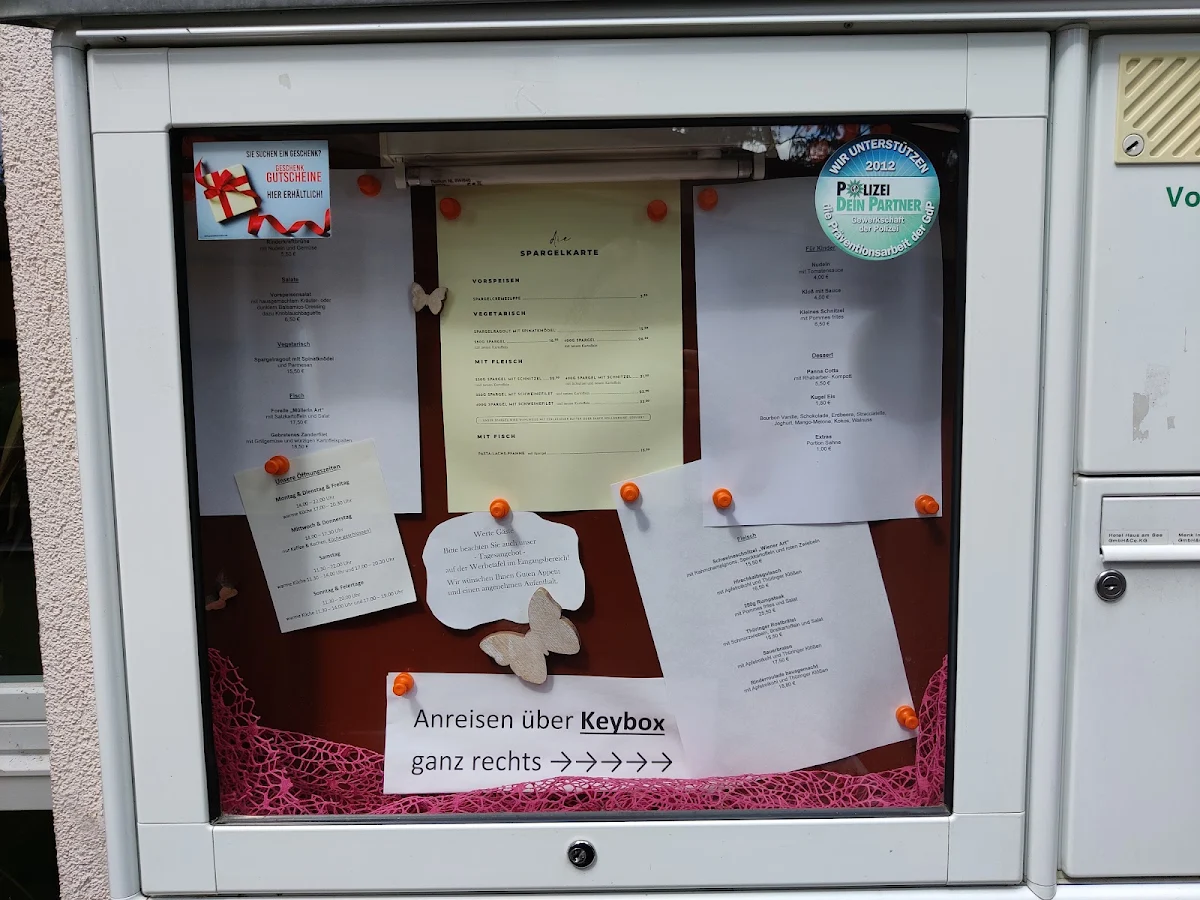 SIE SUCHEN EIN GESCHENK?
GESCHENK
GUTSCHEINE
HIER ERHÄLTLICH!
mit Nudeln und Gemüse
5,50 €
Salate
mit hausgemachten Kräuter- oder
dunklem Balsamico-Dressing
dazu Knoblauchbaguette
6,50 €
Vegetarisch
Spargelragout mit Spinatknödel
und Parmesan
15,50 €
Fisch
Forelle „Müllerin Art“
mit Salzkartoffeln und Salat
17,50 €
Gebratenes Zanderfilet
mit Grillgemüse und würzigen Kartoffelspalten
die
SPARGELKARTE
VORSPEISEN
SPARGELCREMESUPPE
VEGETARISCH
SPARGELRAGOUT MIT SPINATKNÖDEL
MIT FLEISCH
MIT FISCH
WIR UNTERSTÜTZEN
2012
POLIZEI
DEIN PARTNER
Gewerkschaft
der Polizei
die Präventionsarbeit der GdP
Für Kinder
Nudeln
mit Tomatensauce
4,00 €
Kloß mit Sauce
4,00 €
Kleines Schnitzel
mit Pommes frites
6,50 €
Dessert
Panna Cotta
mit Rhabarber- Kompott
5,50 €
Kugel Eis
1,50 €
Bourbon Vanille, Schokolade, Erdbeere, Stracciatella,
Joghurt, Mango-Melone, Kokos, Walnuss
Extras
Portion Sahne
1,00 €
Unsere Öffnungszeiten
Montag & Dienstag & Freitag
Mittwoch & Donnerstag
nur Kaffee & Kuchen, Küche geschlossen!
Samstag
11.30 - 21.00 Uhr
warme Küche 11.30 - 14.00 Uhr und 17.00 - 20.30 Uhr
Sonntag & Feiertage
11.30 - 20.00 Uhr
warme Küche 11.30 - 14.00 Uhr und 17.00 - 19.00 Uhr
Werte Gäste
Bitte beachten Sie auch unser
- Tagesangebot -
auf der Werbetafel im Eingangsbereich!
Wir wünschen Ihnen Guten Appetit
und einen angenehmen Aufenthalt.
Fleisch
Schweineschnitzel „Wiener Art“
15,50 €
Hirschkalbsgulasch
mit Apfelrotkohl und Thüringer Klößen
180g Rumpsteak
mit Pommes frites und Salat
Thüringer Rostbrätel
mit Schmorzwiebeln, Bratkartoffeln und Salat
Sauerbraten
mit Apfelrotkohl und Thüringer Klößen
17,50 €
Rinderroulade hausgemacht
mit Apfelrotkohl und Thüringer Klößen
Anreisen über Keybox
ganz rechts →→→→→
Vo
Hotel Haus am See
GmbH&Co.KG